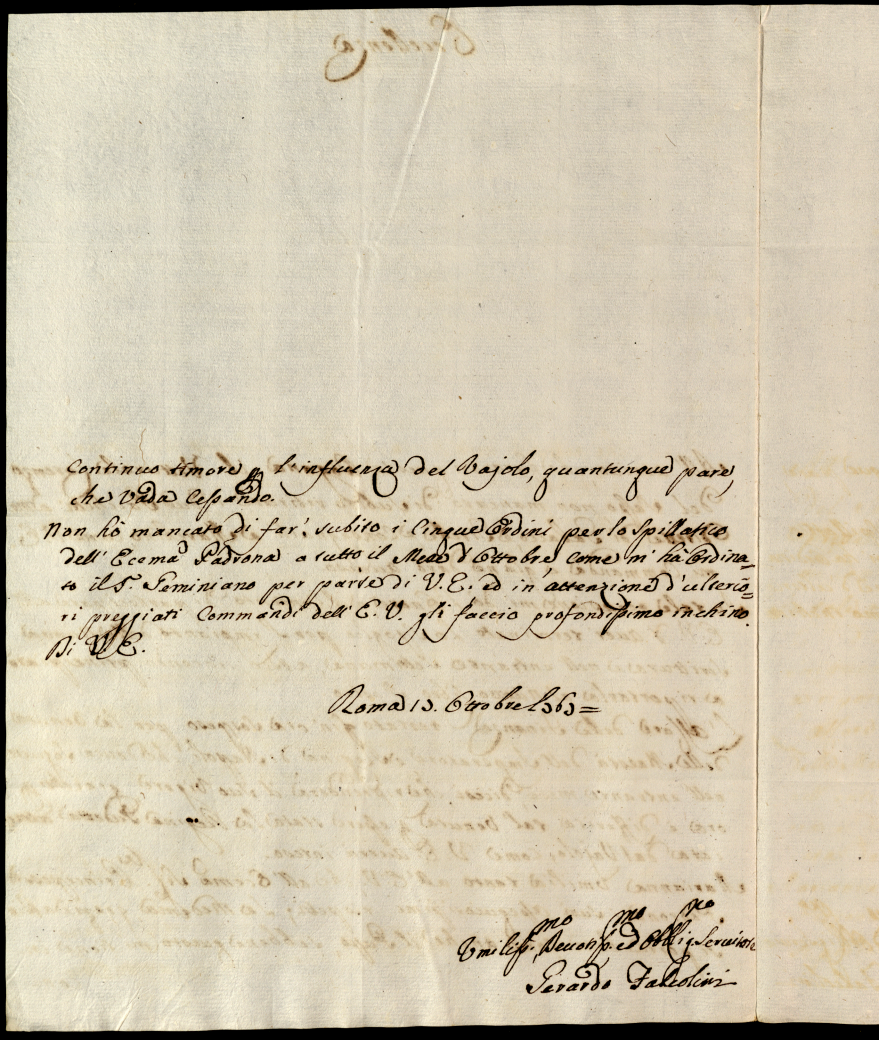 continuo timore p l'influenza del Vajolo, quantunque pare,
che vada cessando.
Non hò mancato di far' subito i Cinque Ordini per lo Spillatico
dell' Eccma Padrona a tutto il Mese d'Ottobre come m' hà Ordina=
to il S.r Geminiano per parte di V. E. ed in attenzione d'ulterio=
ri preggiati Commandi dell' E. V. gli faccio profondissimo inchino.
Di V. E.
Roma Ottobre
Umiliss.mo Devotiss.mo ed Obblig.mo Servitore
Gerardo